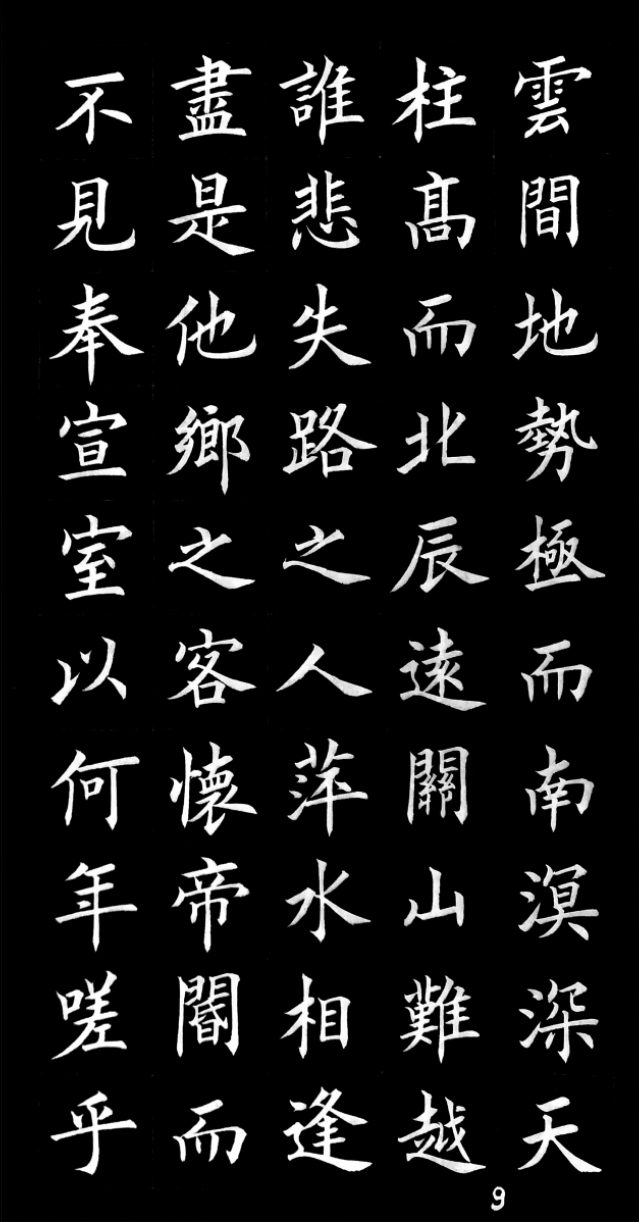 雲間地勢極而南溟深天
柱高而北辰遠關山難越
誰悲失路之人萍水相逢
盡是他鄉之客懷帝閽而
不見奉宣室以何年嗟乎
9